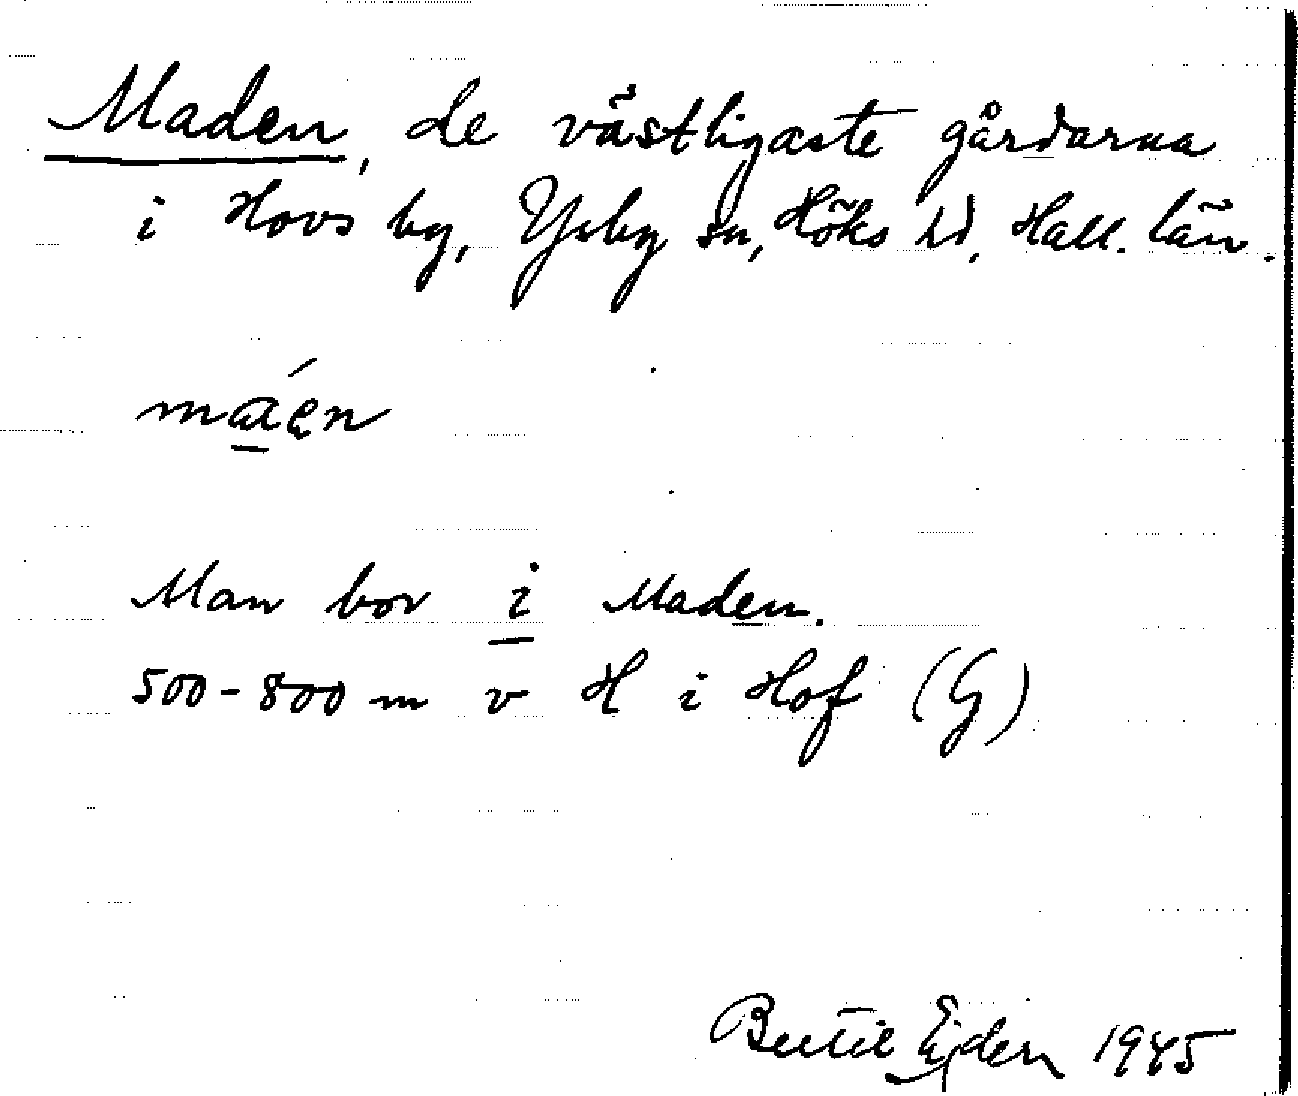 Maden, de västligaste gårdarna
i Hovs by, Ysby sn, Höks hd, Hall. län.
máen
Man bor i Maden.
500-800 m v H i Hof (G)
Bertil Ejder 1945